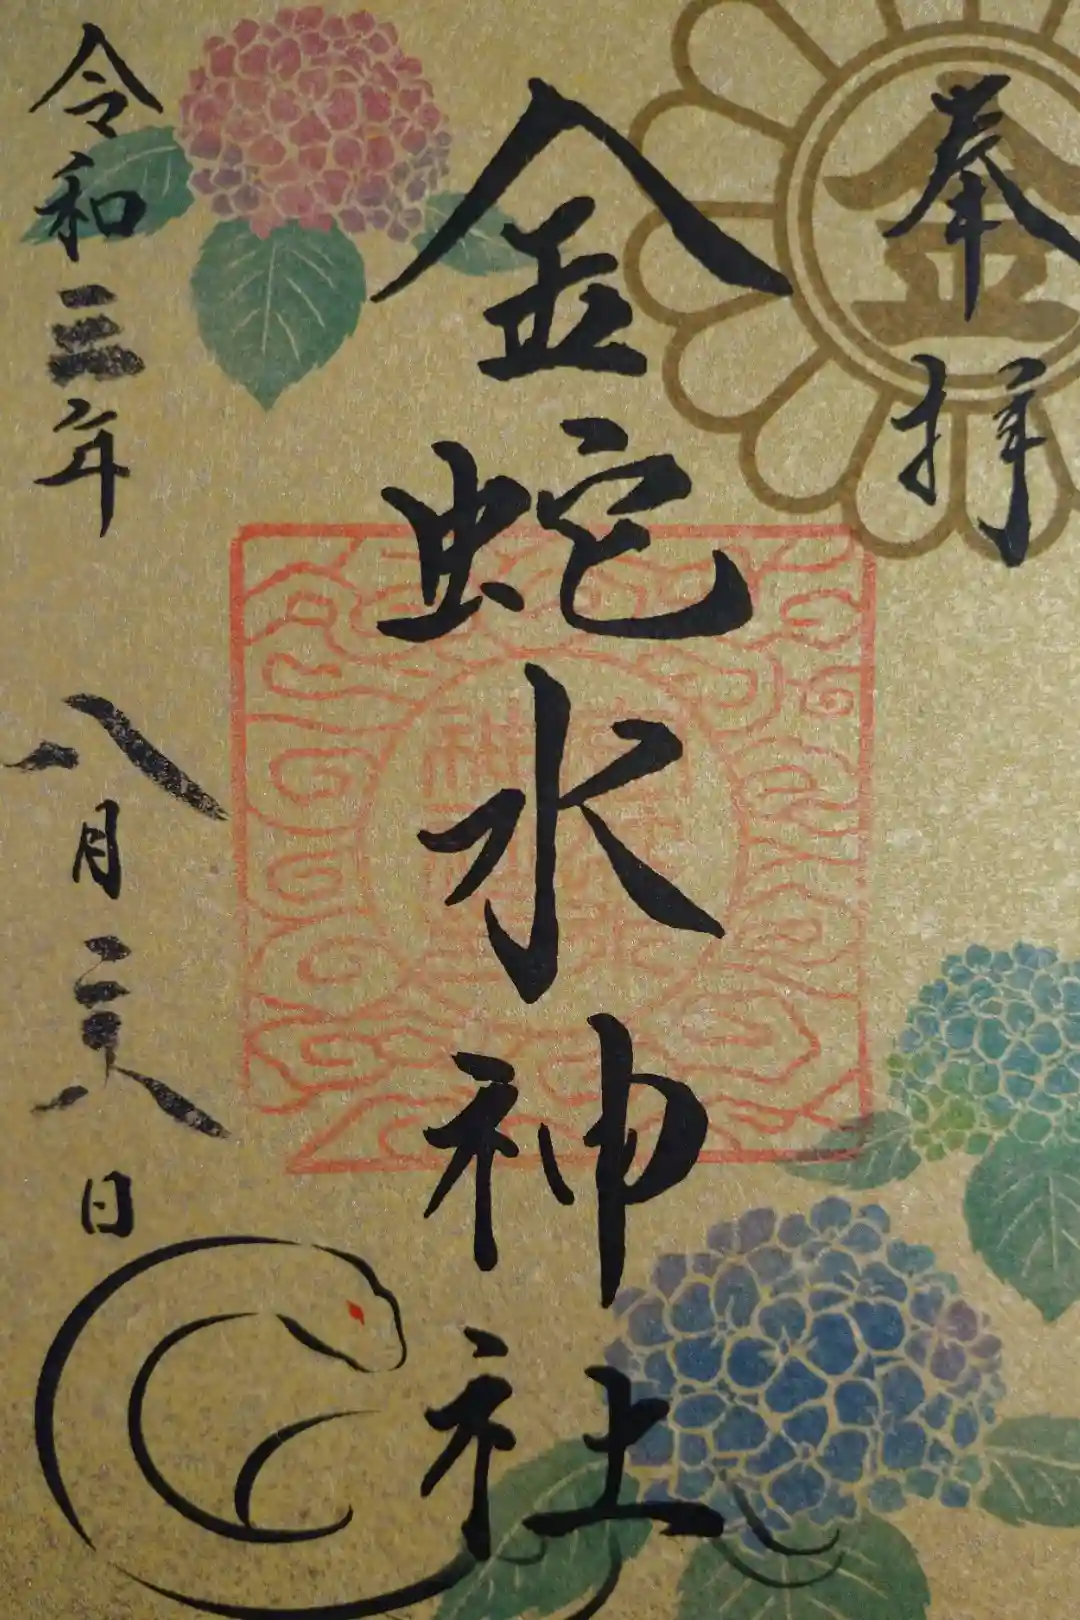 奉拝
金蛇水神社
令和三年
八月二十八日
金